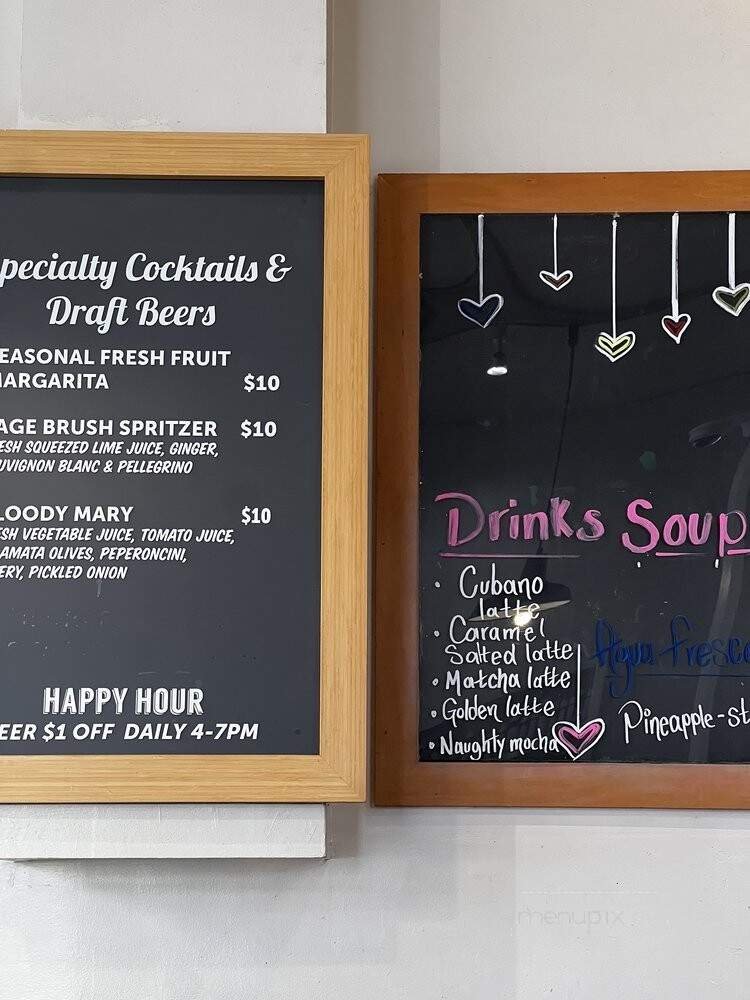 pecialty Cocktails &
Draft Beers
EASONAL FRESH FRUIT
MARGARITA $10
AGE BRUSH SPRITZER $10
ESH SQUEEZED LIME JUICE, GINGER,
UVIGNON BLANC & PELLEGRINO
LOODY MARY $10
ESH VEGETABLE JUICE, TOMATO JUICE,
LAMATA OLIVES, PEPERONCINI,
ERY, PICKLED ONION
HAPPY HOUR
EER $1 OFF DAILY 4-7PM
Drinks Soup
• Cubano
latte
• Caramel
Salted latte
• Matcha latte
• Golden latte
• Naughty mocha
Agua fresca
Pineapple-st
menupix